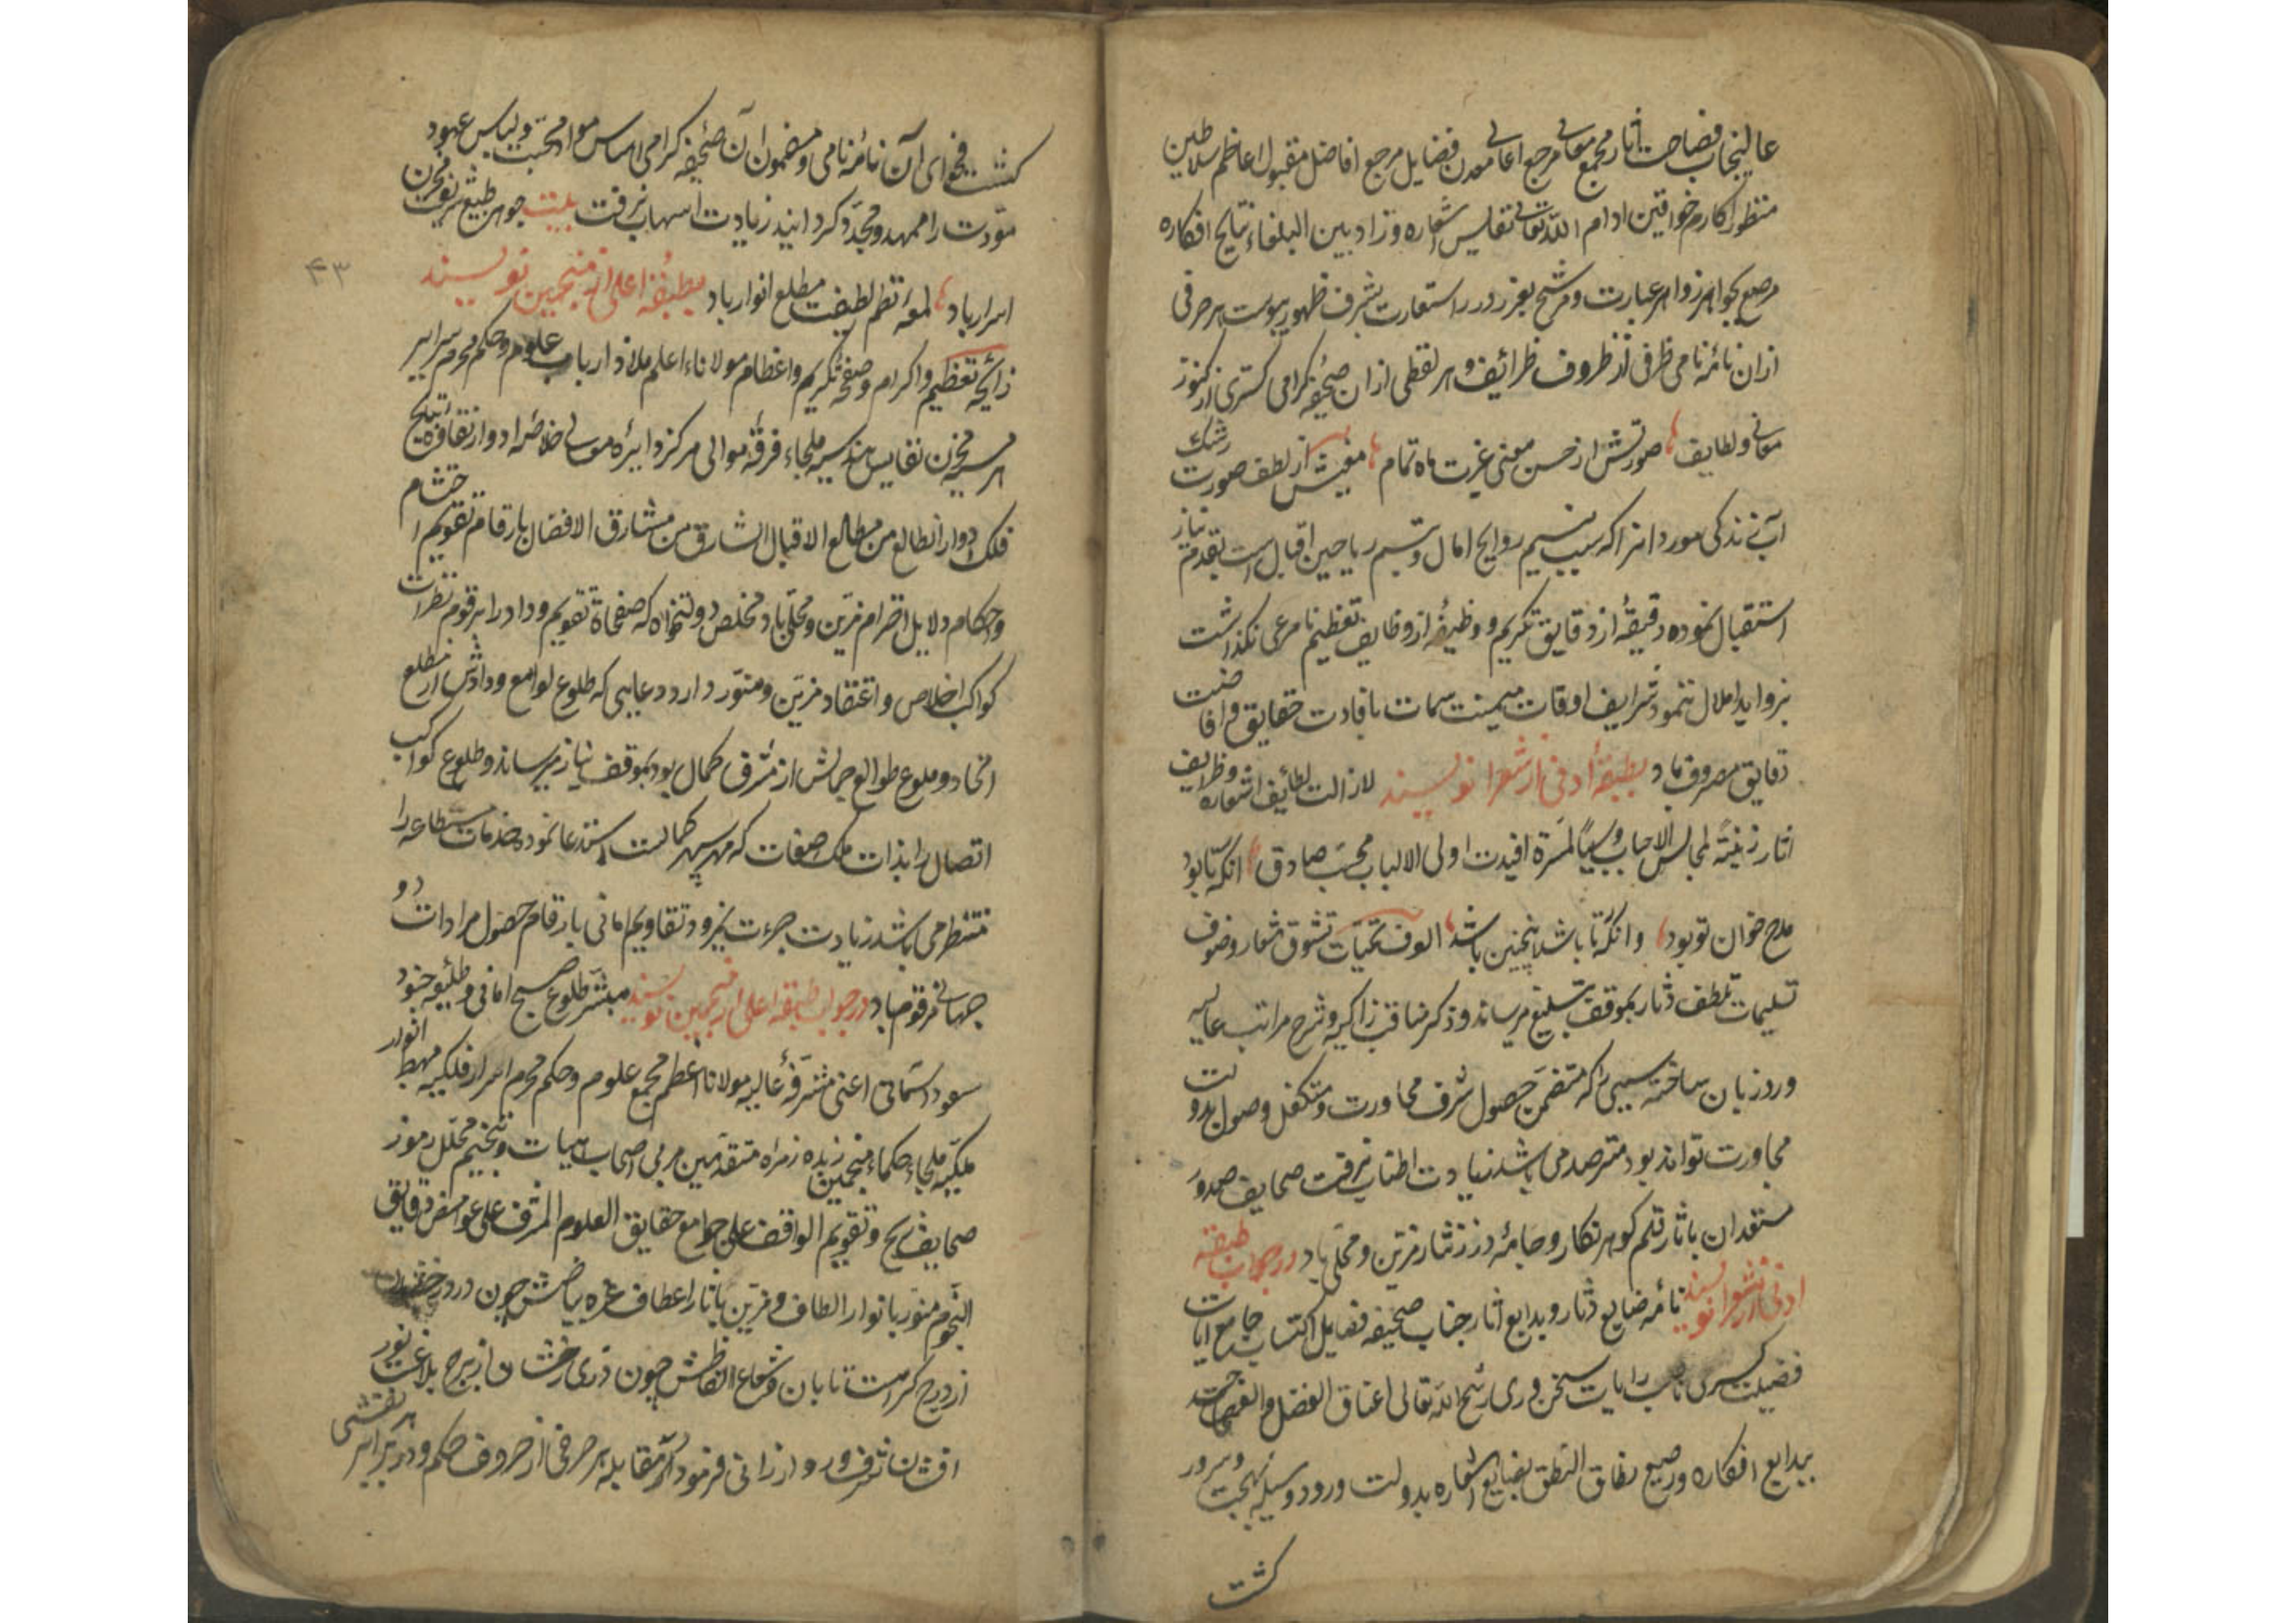 عالیجناب فصاحت آثار مجمع معانی مرجع اعالی معدن فضایل مرجع افاضل مقبول اعاظم سلاطین
منظور اکارم خواقین ادام الله تعالی نفایس اشعاره و زاد بین البلغاء نتایج افکاره
مرصع بجواهر زواهر عبارت و موشح بغرر درر استعارت بشرف ظهور پیوست هر حرفی
ازان نامۀ نامی ظرفی از ظروف ظرائف و هر نقطی ازان صحیفۀ کرامی کستری از کنوز
معانی و لطایف صورتش از حسن معنی غیرت ماه تمام معنیش از لطف صورت رشک
آب زندکی مورد انرا که سبب نسیم روایح امال و تنسیم ریاحین اقبال است بقدم نیاز
استقبال نموده دقیقۀ از دقایق تکریم و وظیفۀ از وظایف تعظیم نامرعی نکذاشت
بزواید املال ننمود شرایف اوقات میمنت سمات بافادت حقایق و افاضت
دقایق مصروف باد بطبقۀ ادنی از شعرا نویسند لازالت لطائف اشعاره و ظرایف
اثاره زینة لمجالس الاحباب و سببا لمسرة افیدت اولی الالباب محب صادق انکه تا بود
مدح خوان تو بود و انکه تا باشد اینچنین باشد الوف تحیات تشوق شعار و صنوف
تسلیمات تلطف دثار بموقف تبلیغ میرساند و ذکر مناقب زاکیه و شرح مراتب عالیه
ورد زبان ساخته سببی را که متضمن حصول شرف مجاورت و متکفل وصول بدولت
مجاورت تواند بود مترصد می باشد زیادت اطناب نرفت صحایف صدور
مستعدان باثار قلم کوهر نکار و خامۀ درر نثار مزین و محلی باد در جواب طبقه
ادنی از شعرا نویسند نامۀ صنایع دثار و بدایع اثار جناب صحیفه فضایل اکتساب جامع ایات
فضیلت کستری ناصب رایات سخن وری رشح الله تعالی اعناق الفضل و الفصاحت
ببدایع افکاره و رصیع نطاق النطق بصنایع اشعاره بدولت ورود وسیله بهجت و سرور
کشت
کشت فحوای آن نامۀ نامی و مضمون ان صحیفۀ کرامی اساس مواد محبت و لباس عهود
مودت را ممهد و مجدد کردانید زیادت اسهاب نرفت بیت جوهر طبع شریفت مخزن
اسرار باد لمعۀ نظم لطیفت مطلع انوار باد بطبقۀ اعلی از منجمین نویسند
۴۳
زایچۀ تعظیم و اکرام و صفحۀ تکریم و اعظام مولاناء اعلم ملاذ ارباب علوم و حکم محرم سرایر
هرمسیه مخزن نفایس هندسیه ملجاء فرقۀ موالی مرکز دایرۀ معالی خلاصۀ ادوار نقاوۀ نتایج
فلک دوار الطالع من مطالع الاقبال الشارق من مشارق الافضال بارقام تقویم احتشام
و احکام دلایل احترام مزین و محلی باد مخلص دولتخواه که صفحاة تقویم وداد را برقوم نظرات
کواکب اخلاص و اعتقاد مزین و منور دارد دعایی که طلوع لوامع ودادش از مطلع
اتحاد و طلوع طوالع جمالش از شرف کمال بود بموقف نیاز میرساند و طلوع کواکب
اتصال را بذات ملک صفات که مهر سپهر کمالست استدعا نموده خدمات مستطاعه را
منتظر می باشد زیادت جرءت نیرود تقاویم امانی بارقام حصول مرادات دو
جهانی مرقوم باد در جواب طبقه اعلی از منجمین نویسند مبشر طلوع صبح امانی و طلیعه جنود
سعود آسمانی اعنی مشرفۀ عالیه مولانا اعظم مجمع علوم و حکم محرم اسرار فلکیه مهبط انوار
ملکیه ملجاء حکماء منجمین زبده زمره متقدمین مربی اصحاب هیات و تنجیم محلل رموز
صحایف زیج و تقویم الواقف علی جوامع حقایق العلوم المشرف علی غوامض دقایق
النجوم منور بانوار الطاف و مزین باثار اعطاف غره بیاضش چون در درخشان
از درج کرامت تابان و شعاع الفاظش چون دری رخشان از برج بلاغت نور
افشان شرف ورود ارزانی فرمود در مقابله هر حرفی از حروف حکم و در برابر هر نقشی